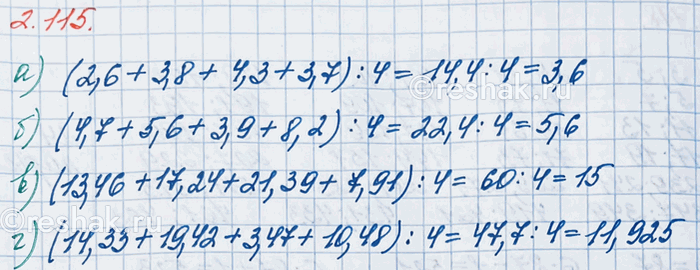 2.115.
а) (2,6 + 3,8 + 4,3 + 3,7) : 4 = 14,4 : 4 = 3,6
б) (4,7 + 5,6 + 3,9 + 8,2) : 4 = 22,4 : 4 = 5,6
в) (13,46 + 17,24 + 21,39 + 7,91) : 4 = 60 : 4 = 15
г) (14,33 + 19,42 + 3,47 + 10,48) : 4 = 47,7 : 4 = 11,925